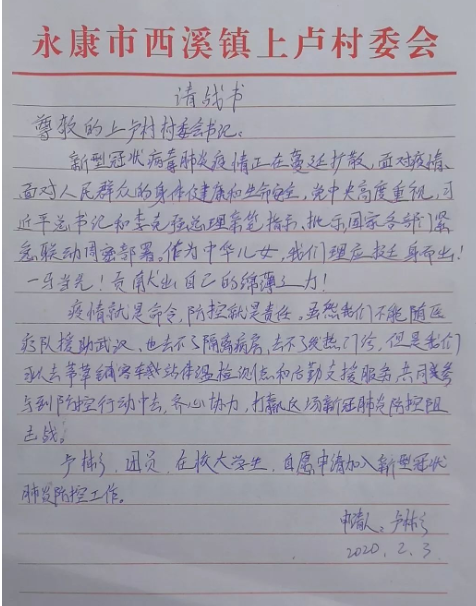 永康市西溪镇上卢村委会
请战书
尊敬的上卢村村委会书记:
新型冠状病毒肺炎疫情正在蔓延扩散,面对疫情、
面对人民群众的身体健康和生命安全,党中央高度重视,习
近平总书记和李克强总理亲笔指示、批示国家各部门紧
急联动周密部署。作为中华儿女,我们理应挺身而出!
一马当先!贡献出自己的绵薄之力!
疫情就是命令,防控就是责任,虽然我们不能随医
疗队援助武汉,也去不了隔离病房,去不了发热门诊,但是我们
可以去 站体温检测点和后勤支援服务,共同参
与到防控行动中去,齐心协力,打赢这场新冠肺炎防控阻
击战!
卢彬彬,团员,在校大学生,自愿申请加入新型冠状
肺炎防控工作。
申请人:卢彬彬
2020.2.3